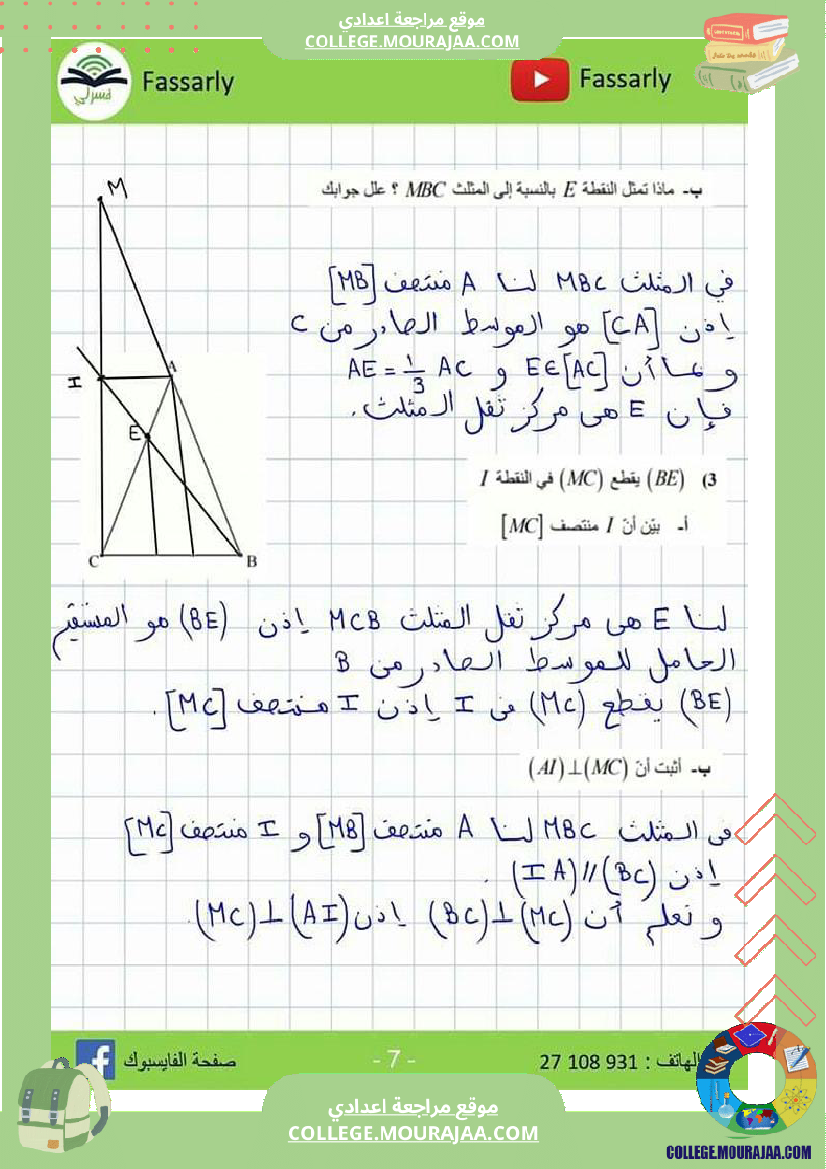 موقع مراجعة اعدادي
COLLEGE.MOURAJAA.COM
Fassarly
فسرلي
Fassarly
ب- ماذا تمثل النقطة E بالنسبة إلى المثلث MBC ؟ علل جوابك
M
في المثلث MBC لنا A منتصف [MB]
إذن [CA] هو الموسط الصادر من C
و بما أن E∈[AC] و AE = 1/3 AC
فإن E هي مركز ثقل المثلث.
A
I
E
C
B
3) (BE) يقطع (MC) في النقطة I
أ- بيّن أنّ I منتصف [MC]
لنا E هي مركز ثقل المثلث MCB إذن (BE) هو المستقيم
الحامل للموسط الصادر من B
(BE) يقطع (MC) في I إذن I منتصف [MC].
ب- أثبت أنّ (AI)⊥(MC)
في المثلث MBC لنا A منتصف [MB] و I منتصف [MC]
إذن (IA)//(BC).
و نعلم أن (BC)⊥(MC) إذن (MC)⊥(AI).
صفحة الفايسبوك
- 7 -
الهاتف : 27 108 931
موقع مراجعة اعدادي
COLLEGE.MOURAJAA.COM
COLLEGE.MOURAJAA.COM